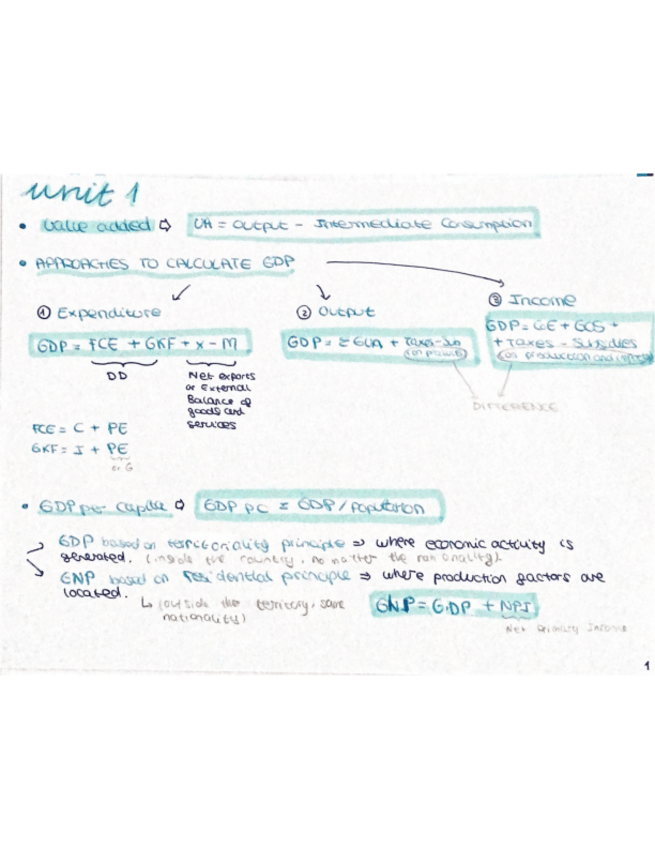 unit 1
• Value added ⇨ VA = Output - Intermediate Consumption
• APPROACHES TO CALCULATE GDP
① Expenditure
GDP = FCE + GKF + X - M
DD
Net exports
or External
Balance of
goods and
services
FCE = C + PE
GKF = I + PE
or G
② Output
GDP = Σ GVA + Taxes - Sub
(on products)
③ Income
GDP = CE + GOS +
+ Taxes - Subsidies
(on production and imports)
DIFFERENCE
• GDP per capita ⇨ GDP pc = GDP / Population
GDP based on territoriality principle ⇒ where economic activity is
generated. (inside the country, no matter the nationality).
GNP based on residential principle ⇒ where production factors are
located.
↳ (outside the territory, same
nationality)
GNP = GDP + NPI
Net Primary Income
1